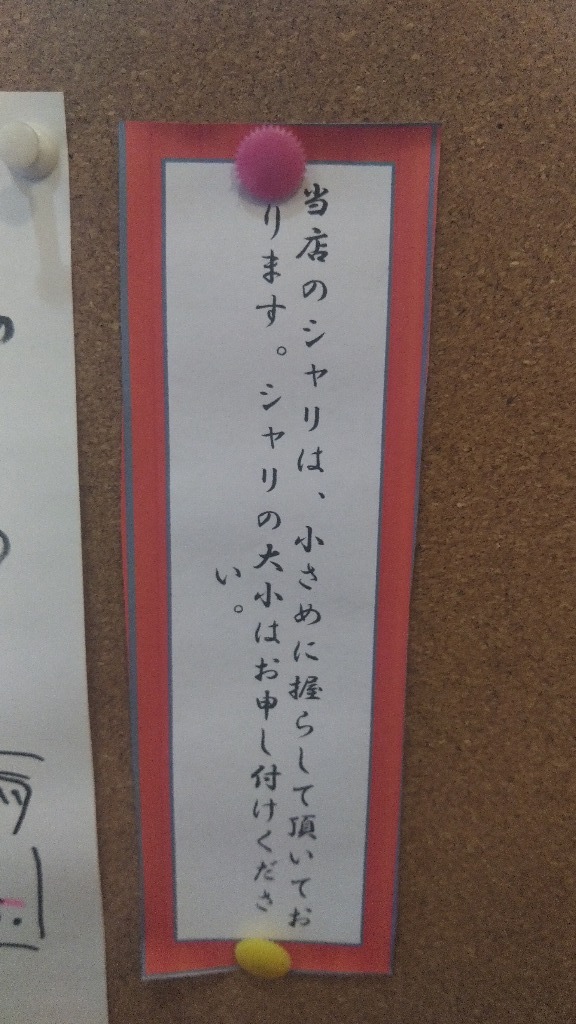 当店のシャリは、小さめに握らして頂いてお
ります。シャリの大小はお申し付けくださ
い。